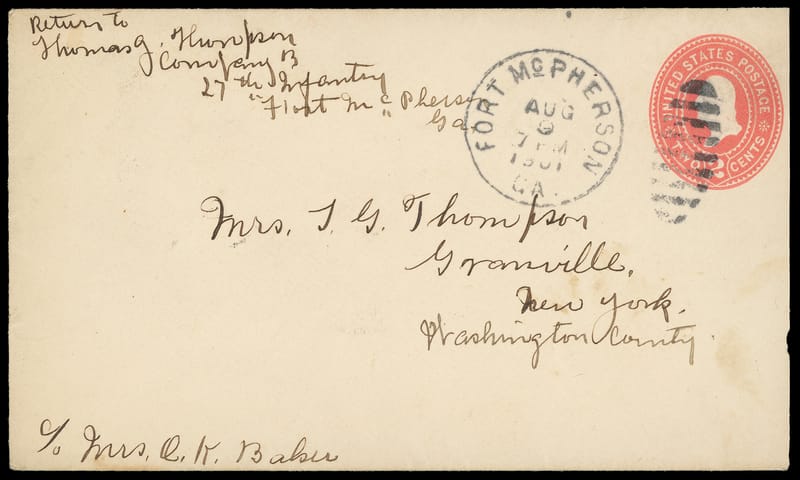 Return to
Thomas G. Thompson
Company B
27th Infantry
"Fort McPherson"
Ga
FORT McPHERSON
AUG
9
7 PM
1901
GA.
UNITED STATES POSTAGE
TWO 2 CENTS
Mrs. T. G. Thompson
Granville,
New York.
Washington County.
c/o Mrs. O. K. Baker